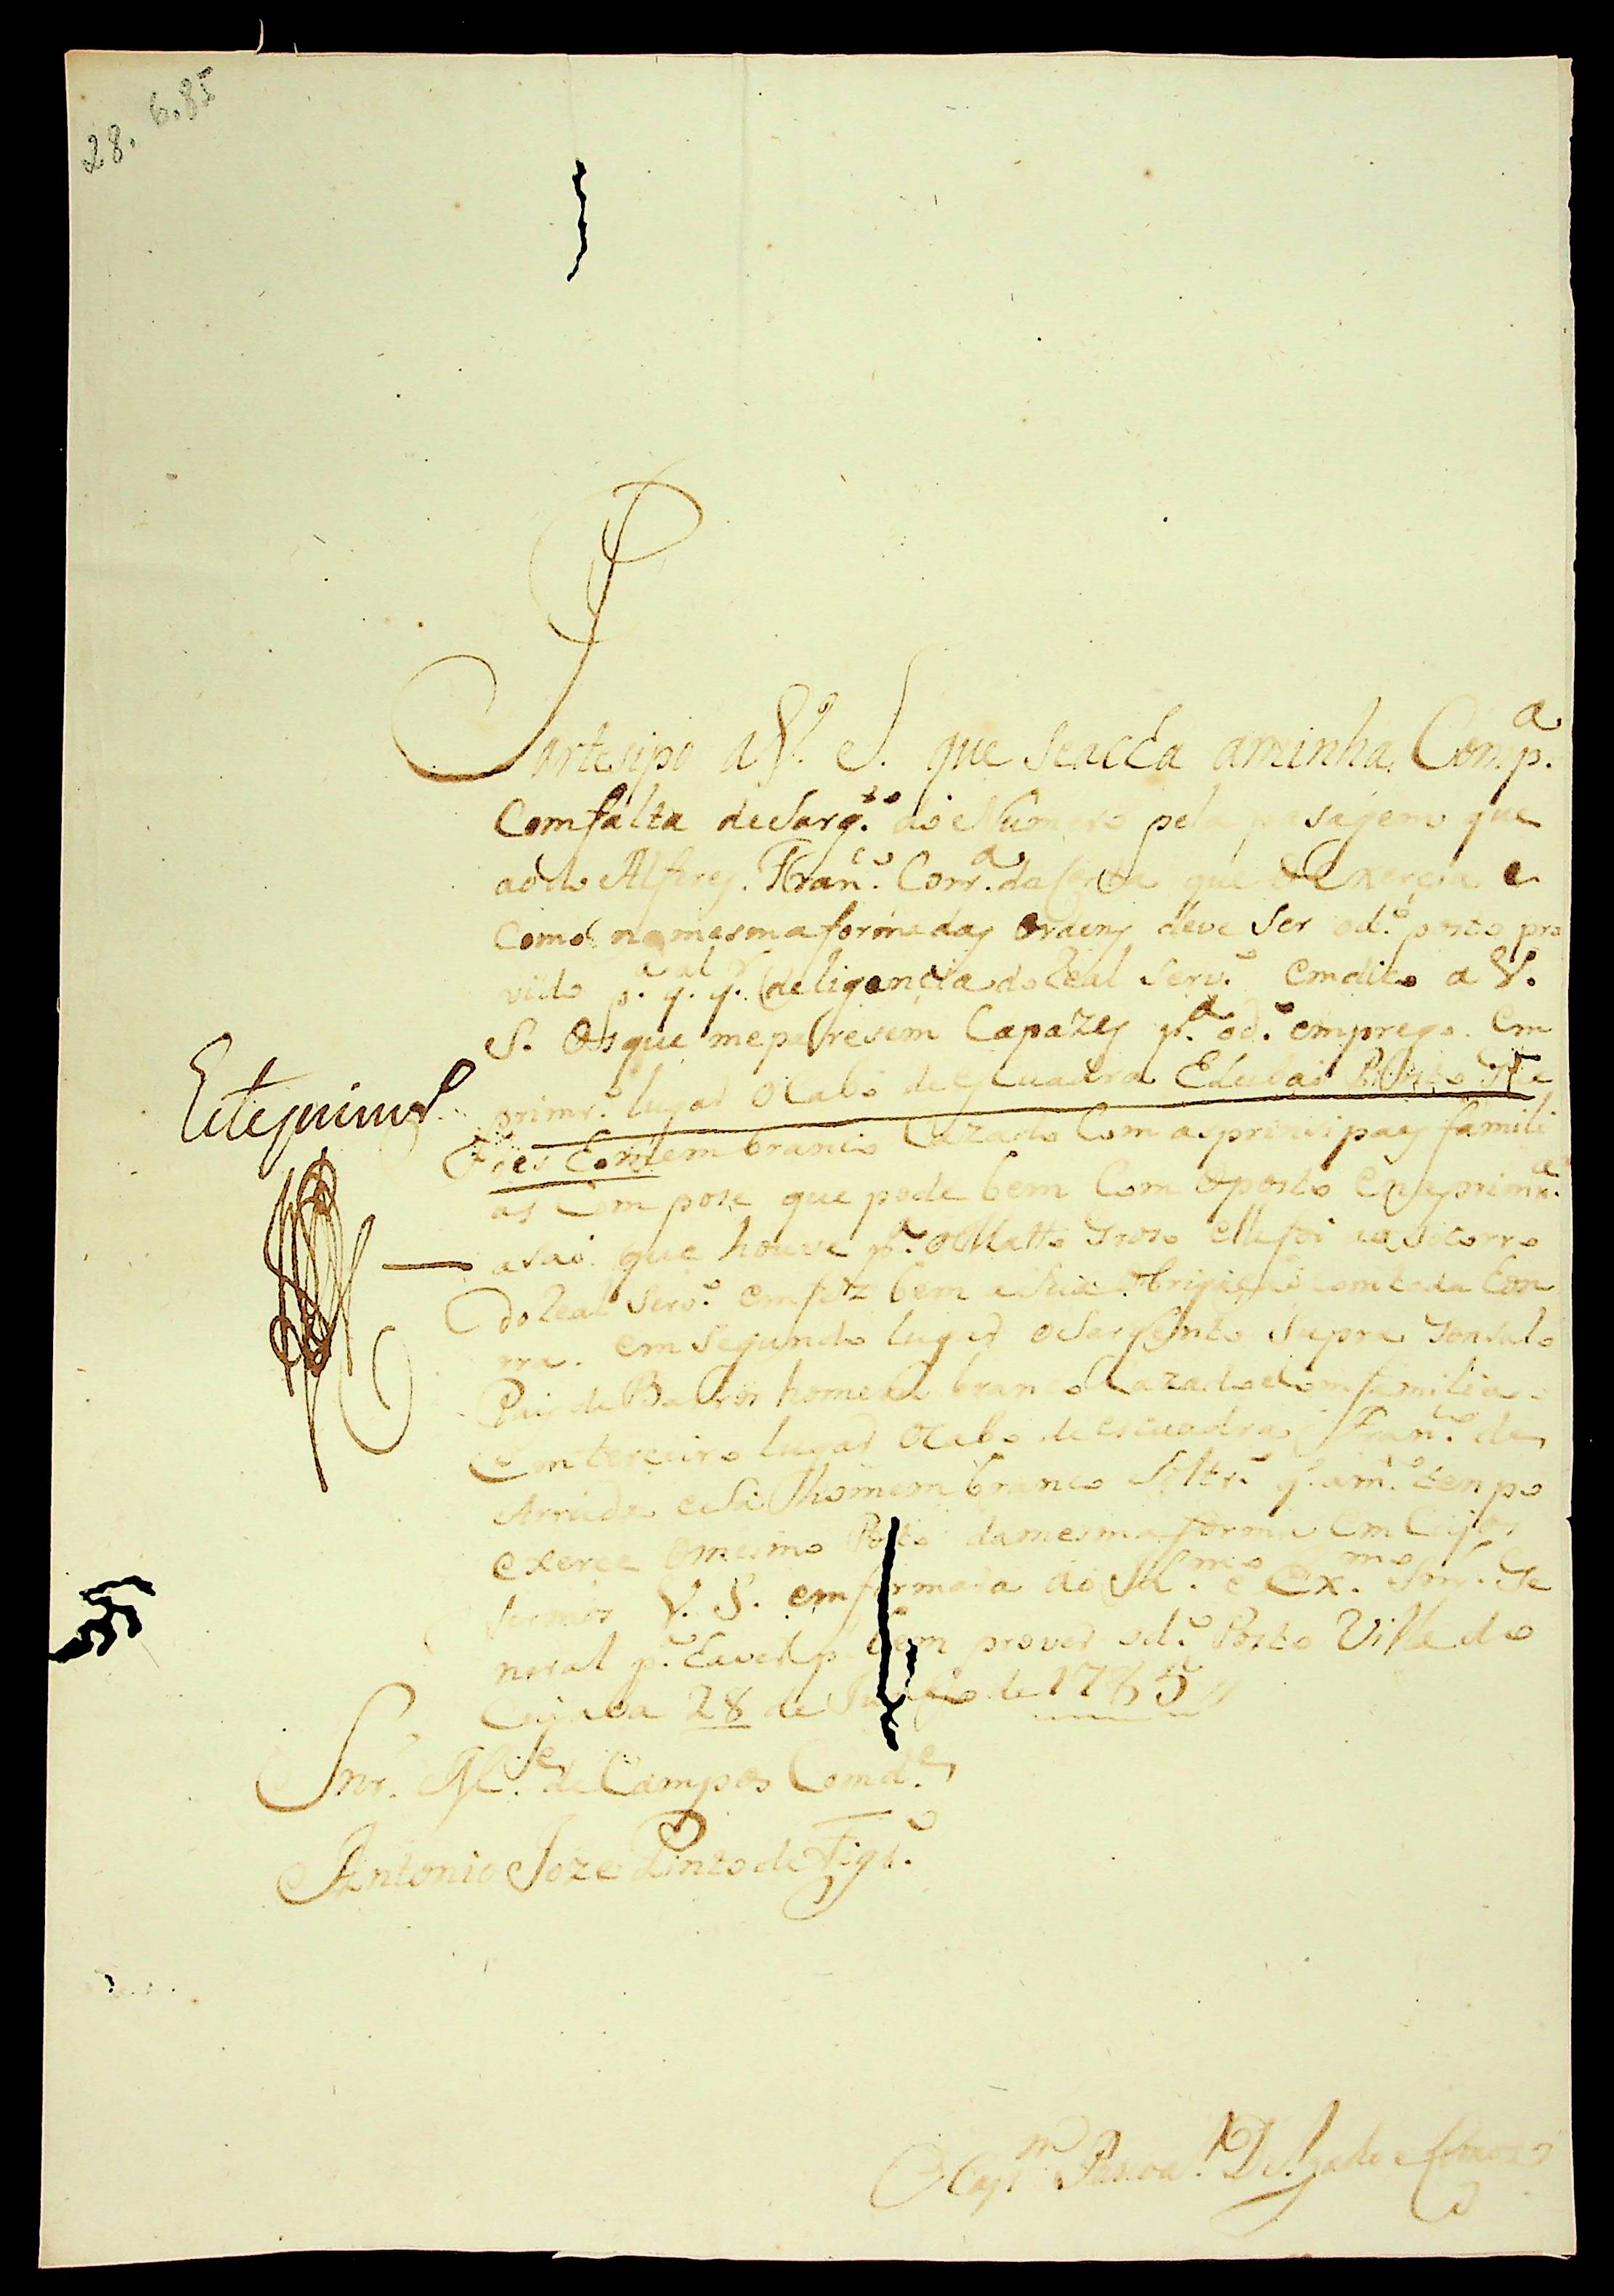 28. 6.85
Partesipo a V. S. que se acĉa a minha Comp.ª
Com falta de Sarg.to do Numero pela pasajem que
ao de Alferes. Fran.co Corr.ª da Costa que o Exercia e
Como na mesma forma das Ordens deve ser o d.º posto pro
vido p.ª q. al q.r deligencia do Real Serv.º emdico a V.
S. Os que me paresem Capazes p.ª o d.º emprego. Em
primr.º lugar o Cabo de escuadra
Homem branco Cazado Com as prinsipaes famili
as Com pose que pode bem Com o posto e na primr.ª
asaó que houve p.ª o Matto Groso elle foi a socorro
do Real Serv.º em fez bem a sua Obrigaçaó com toda hon
rra. em segundo lugar o Sargento supra Gonsalo
Pais de Barros homem branco Cazado e Com familia
Em terceiro lugar o Cabo de escuadra Fran.co de
Arruda e Sá homem branco Soltr.º q. a m.to tempo
exerce o mesmo Posto da mesma forma Em Cujos
termos V. S. emformara ao Ill.mo e Ex.mo Snr. Ge
neral p.ª haver p. bem prover o d.º Posto Villa do
Cuyaba 28 de Junho de 1785
Snr. M.e de Campos Comd.e
Antonio Joze Pinto de Figr.º
O Cap.m Pascoal Delgado